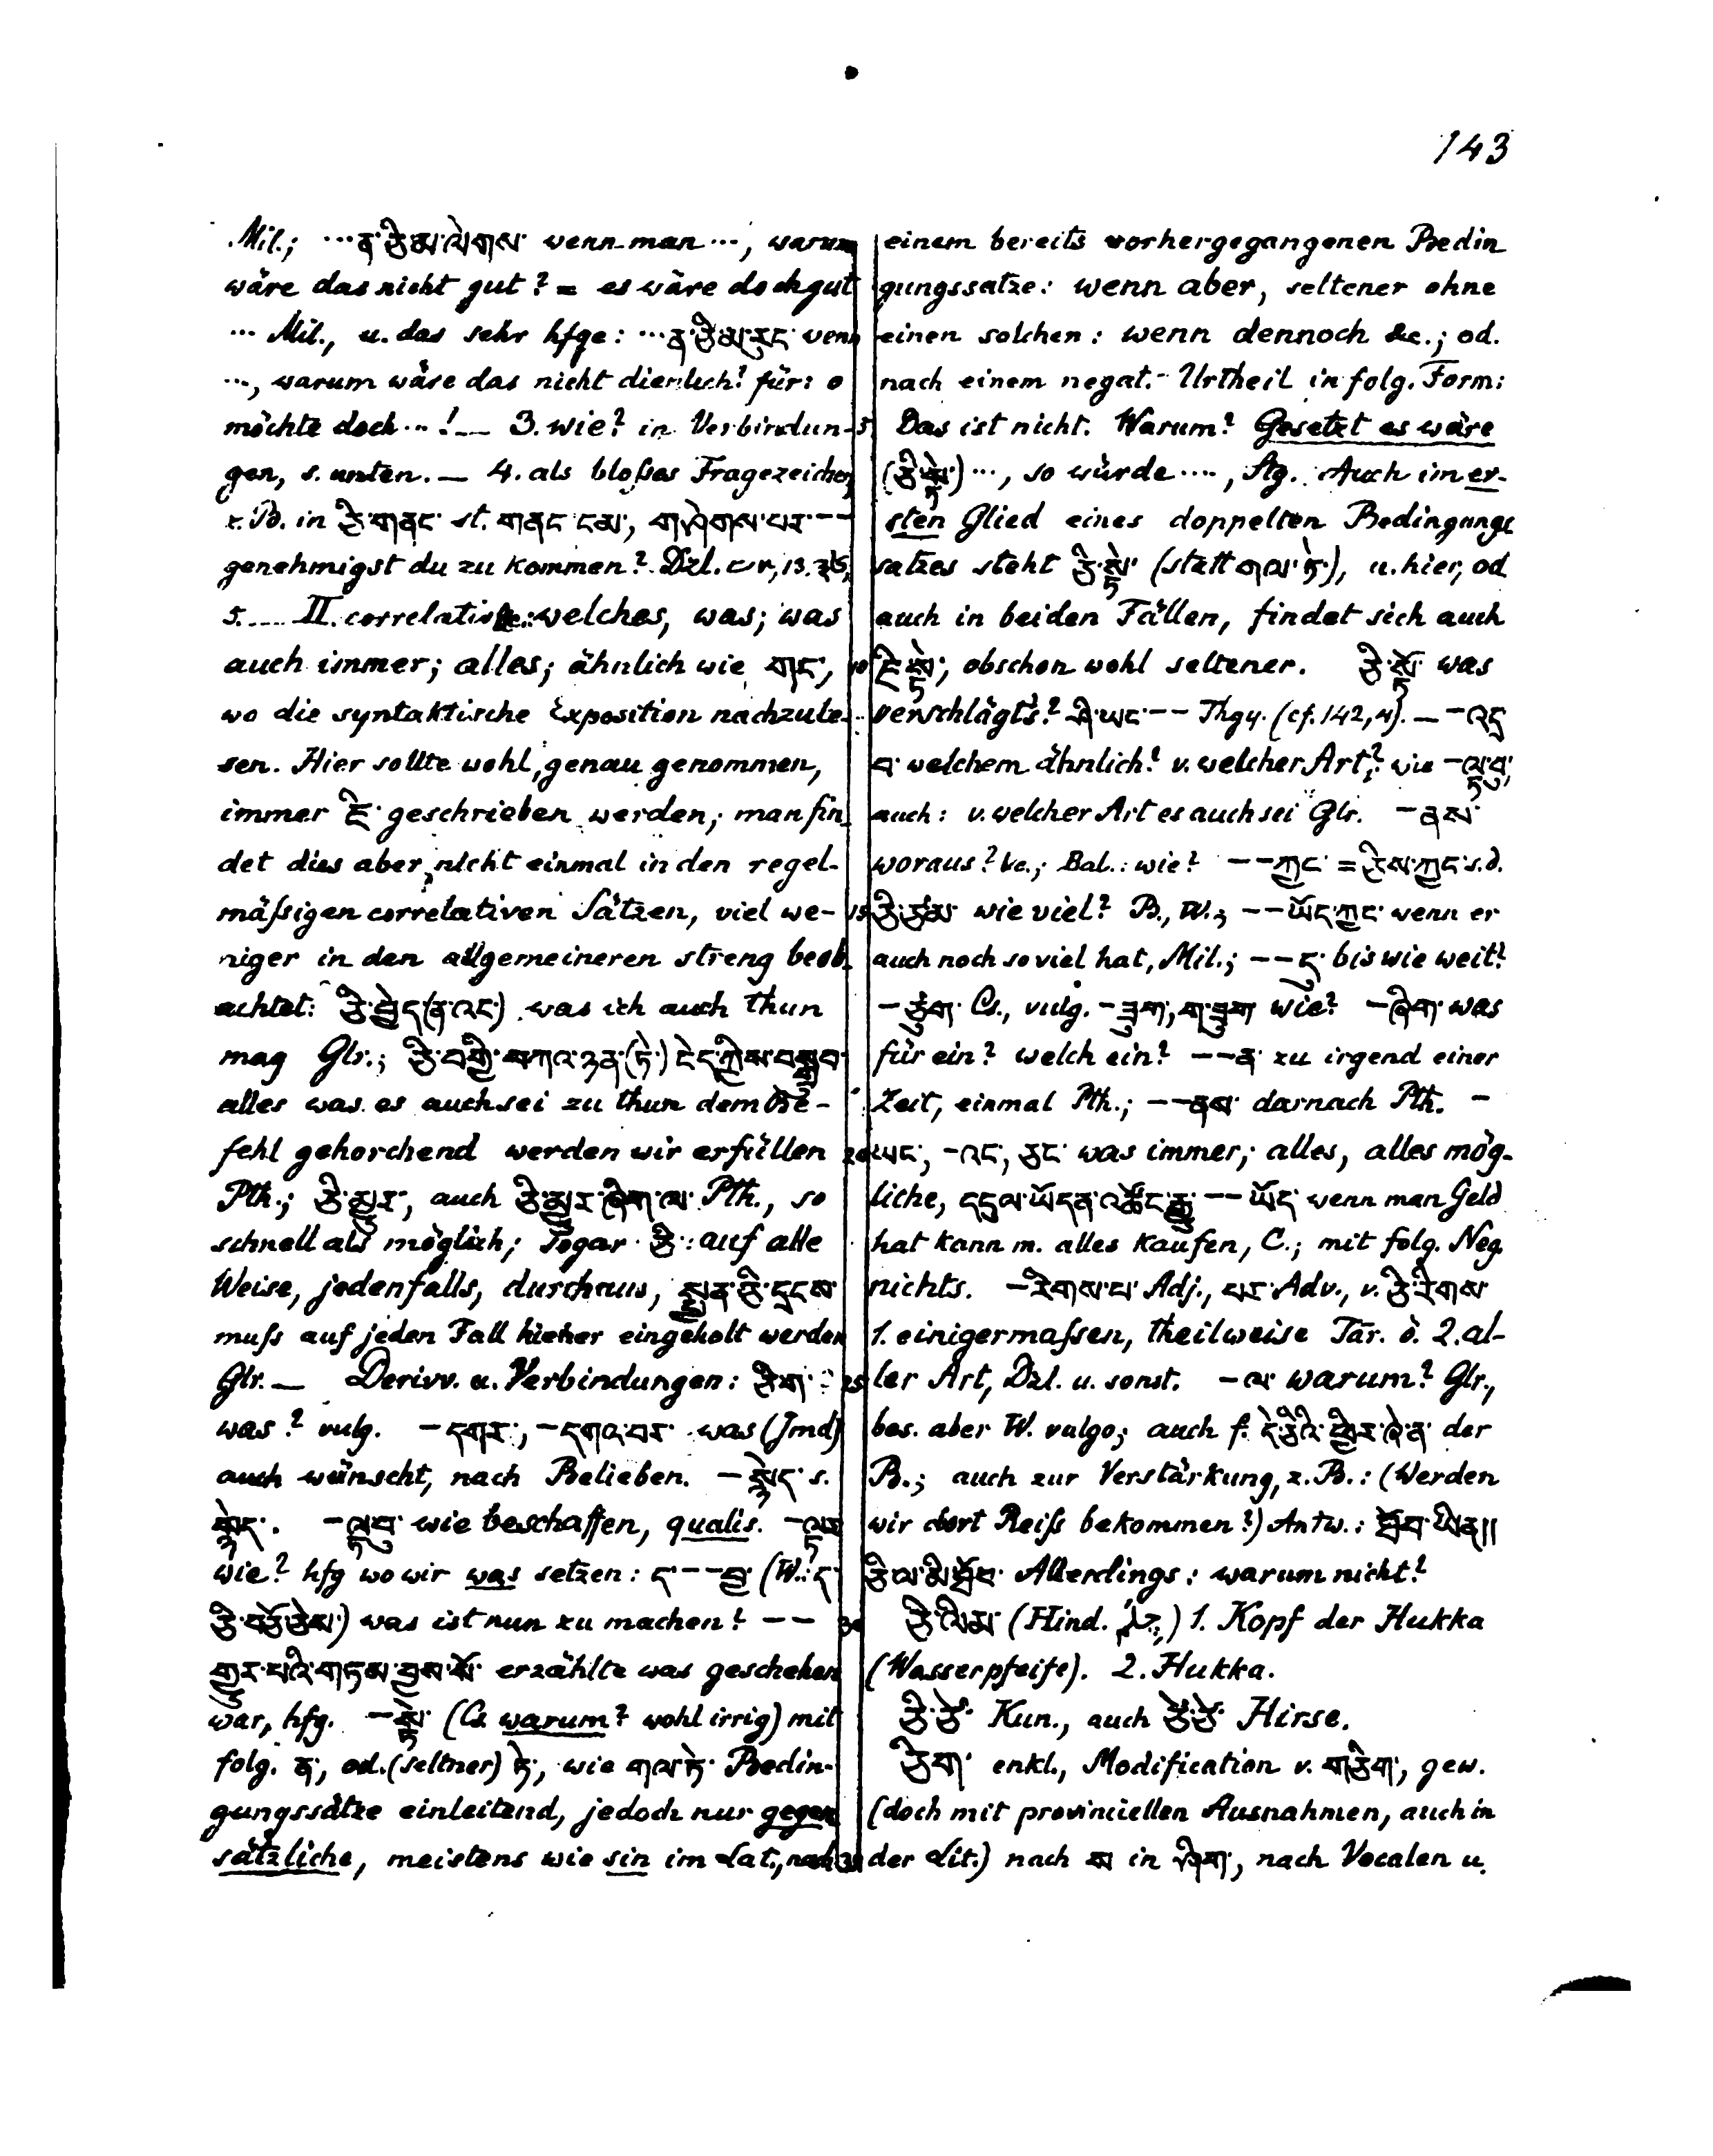 143
Mil.; ...ན་ཅི་མ་ལེགས་ wenn man ..., warum
wäre das nicht gut? = es wäre doch gut
... Mil., u. das sehr hfge: ...ན་ཅི་མ་རུང་ wenn
..., warum wäre das nicht dienlich? für: o
möchte doch ...! — 3. wie? in Verbindun-
gen, s. unten. — 4. als bloßes Fragezeichen
z. B. in ཅི་གནང་ st. གནང་ངམ་, གཤེགས་པར་ --
genehmigst du zu kommen? Dzl.
5. — II. correlative: welches, was; was
auch immer; alles; ähnlich wie གང་,
wo die syntaktische Exposition nachzule-
sen. Hier sollte wohl, genau genommen,
immer ཇི་ geschrieben werden; man fin-
det dies aber nicht einmal in den regel-
mäßigen correlativen Sätzen, viel we-
niger in den allgemeineren streng beob-
achtet: ཅི་བྱེད་(ན་འང་) was ich auch thun
mag Glr.; ཅི་བགྱི་བཀའ་ཉན་(ཏེ་) ངེད་ཀྱིས་བསྒྲུབ་
alles was es auch sei zu thun dem Be-
fehl gehorchend werden wir erfüllen
Pth.; ཅི་མྱུར་, auch ཅི་མྱུར་ཞིག་ལ་ Pth., so
schnell als möglich; sogar ཅི་: auf alle
Weise, jedenfalls, durchaus, སྤྱན་ཅི་དྲངས་
muß auf jeden Fall hieher eingeholt werden
Glr. — Derivv. u. Verbindungen: ཅིག་
was? vulg. -དགར་, -དགའ་བར་ was (Jmd)
auch wünscht, nach Belieben. -སྙེད་ s.
སྙེད་. -ལྟ་བུ་ wie beschaffen, qualis. -ལྟར་
wie? hfg wo wir was setzen: ད་ -- བྱ་ (W.: ད་
ཅི་བཅོ་ཅེས་) was ist nun zu machen? --
གྱུར་པའི་གཏམ་བྱས་སོ་ erzählte was geschehen
war, hfg. -སྟེ་ (Cs warum? wohl irrig) mit
folg. ན་, od. (seltner) ཏེ་, wie གལ་ཏེ་ Bedin-
gungssätze einleitend, jedoch nur gegen
sätzliche, meistens wie sin im Lat., nach
einem bereits vorhergegangenen Bedin
gungssatze: wenn aber, seltener ohne
einen solchen: wenn dennoch &c.; od.
nach einem negat. Urtheil in folg. Form:
5 Das ist nicht. Warum? Gesetzt es wäre
(ཅི་སྟེ་) ..., so würde ...., Stg. Auch im er-
sten Glied eines doppelten Bedingungs
satzes steht ཅི་སྟེ་ (statt གལ་ཏེ་), u. hier, od
auch in beiden Fällen, findet sich auch
10 ཇི་སྟེ་, obschon wohl seltener. ཅི་སྟོ་ was
verschlägt's? ཤི་ཡང་ -- Thgy. (cf. 142,4). — -འདྲ་
བ་ welchem ähnlich? v. welcher Art? wie -ལྟ་བུ་,
auch: v. welcher Art es auch sei Glr. -ནས་
woraus? &c.; Bal.: wie? --ཀྱང་ = ཅིས་ཀྱང་ s. d.
15 ཅི་ཙམ་ wie viel? B., W.; --ཡོད་ཀྱང་ wenn er
auch noch so viel hat, Mil.; --དུ་ bis wie weit?
-ཙུག་ Cs., vulg. -ཟུག་, ག་ཟུག་ wie? -ཞིག་ was
für ein? welch ein? --ན་ zu irgend einer
Zeit, einmal Pth.; --ནས་ darnach Pth. -
20 ཡང་, -འང་, ཅང་ was immer; alles, alles mög-
liche, དངུལ་ཡོད་ན་འཚོང་རྒྱུ་ -- ཡོད་ wenn man Geld
hat kann m. alles kaufen, C.; mit folg. Neg
nichts. -རིགས་པ་ Adj., པར་ Adv., v. ཅི་རིགས་
1. einigermaßen, theilweise Tār. ö. 2. al-
25 ler Art, Dzl. u. sonst. -ལ་ warum? Glr.,
bes. aber W. vulgo; auch f. དེ་ཅིའི་ཕྱིར་ཞེ་ན་ der
B.; auch zur Verstärkung, z. B.: (Werden
wir dort Reiß bekommen?) Antw.: ཐོབ་ཡིན།།
ཅི་ལ་མི་ཐོབ་ Allerdings: warum nicht?
30 ཅི་ལིམ་ (Hind. چلم) 1. Kopf der Hukka
(Wasserpfeife). 2. Hukka.
ཅི་ཙེ་ Kun., auch ཙི་ཙི་ Hirse.
ཅིག་ enkl., Modification v. གཅིག་, gew.
(doch mit provinciellen Ausnahmen, auch in
35 der Lit.) nach ས in ཤིག་, nach Vocalen u.